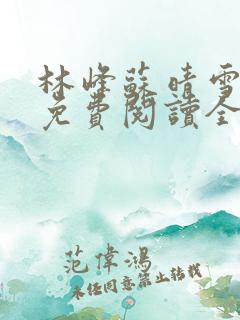 林峰蘇晴雪
免費閱讀全
范偉鴻
未經同意禁止轉載